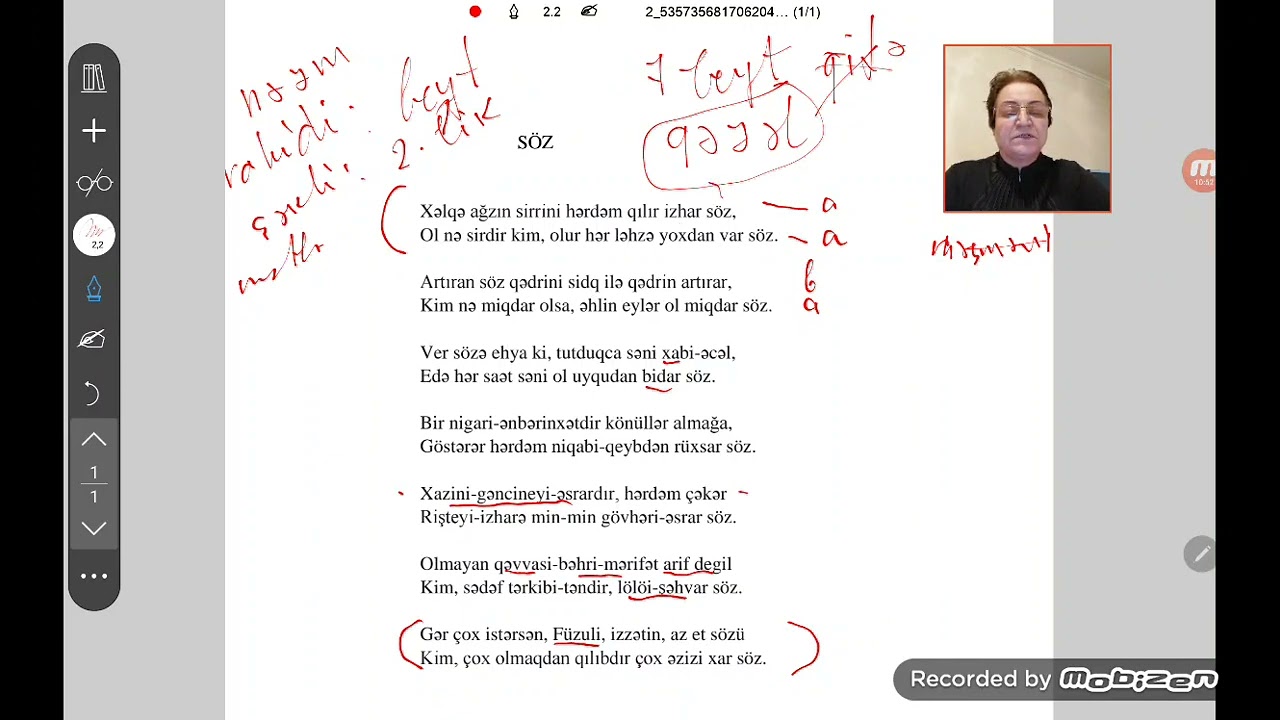 2.2
2_535735681706204... (1/1)
nəzm
vahidi: beyt
şəkli: 2.lik
7 beyt qitə
qəzəl
SÖZ
Xəlqə ağzın sirrini hərdəm qılır izhar söz, a
Ol nə sirdir kim, olur hər ləhzə yoxdan var söz. a
Artıran söz qədrini sidq ilə qədrin artırar, b
Kim nə miqdar olsa, əhlin eylər ol miqdar söz. a
Ver sözə ehya ki, tutduqca səni xabi-əcəl,
Edə hər saət səni ol uyqudan bidar söz.
Bir nigari-ənbərinxətdir könüllər almağa,
Göstərər hərdəm niqabi-qeybdən rüxsar söz.
Xazini-gəncineyi-əsrardır, hərdəm çəkər
Rişteyi-izharə min-min gövhəri-əsrar söz.
Olmayan qəvvasi-bəhri-mərifət arif degil
Kim, sədəf tərkibi-təndir, lölöi-şəhvar söz.
Gər çox istərsən, Füzuli, izzətin, az et sözü
Kim, çox olmaqdan qılıbdır çox əzizi xar söz.
2,2
1
1
10:52
Recorded by MOBIZEN